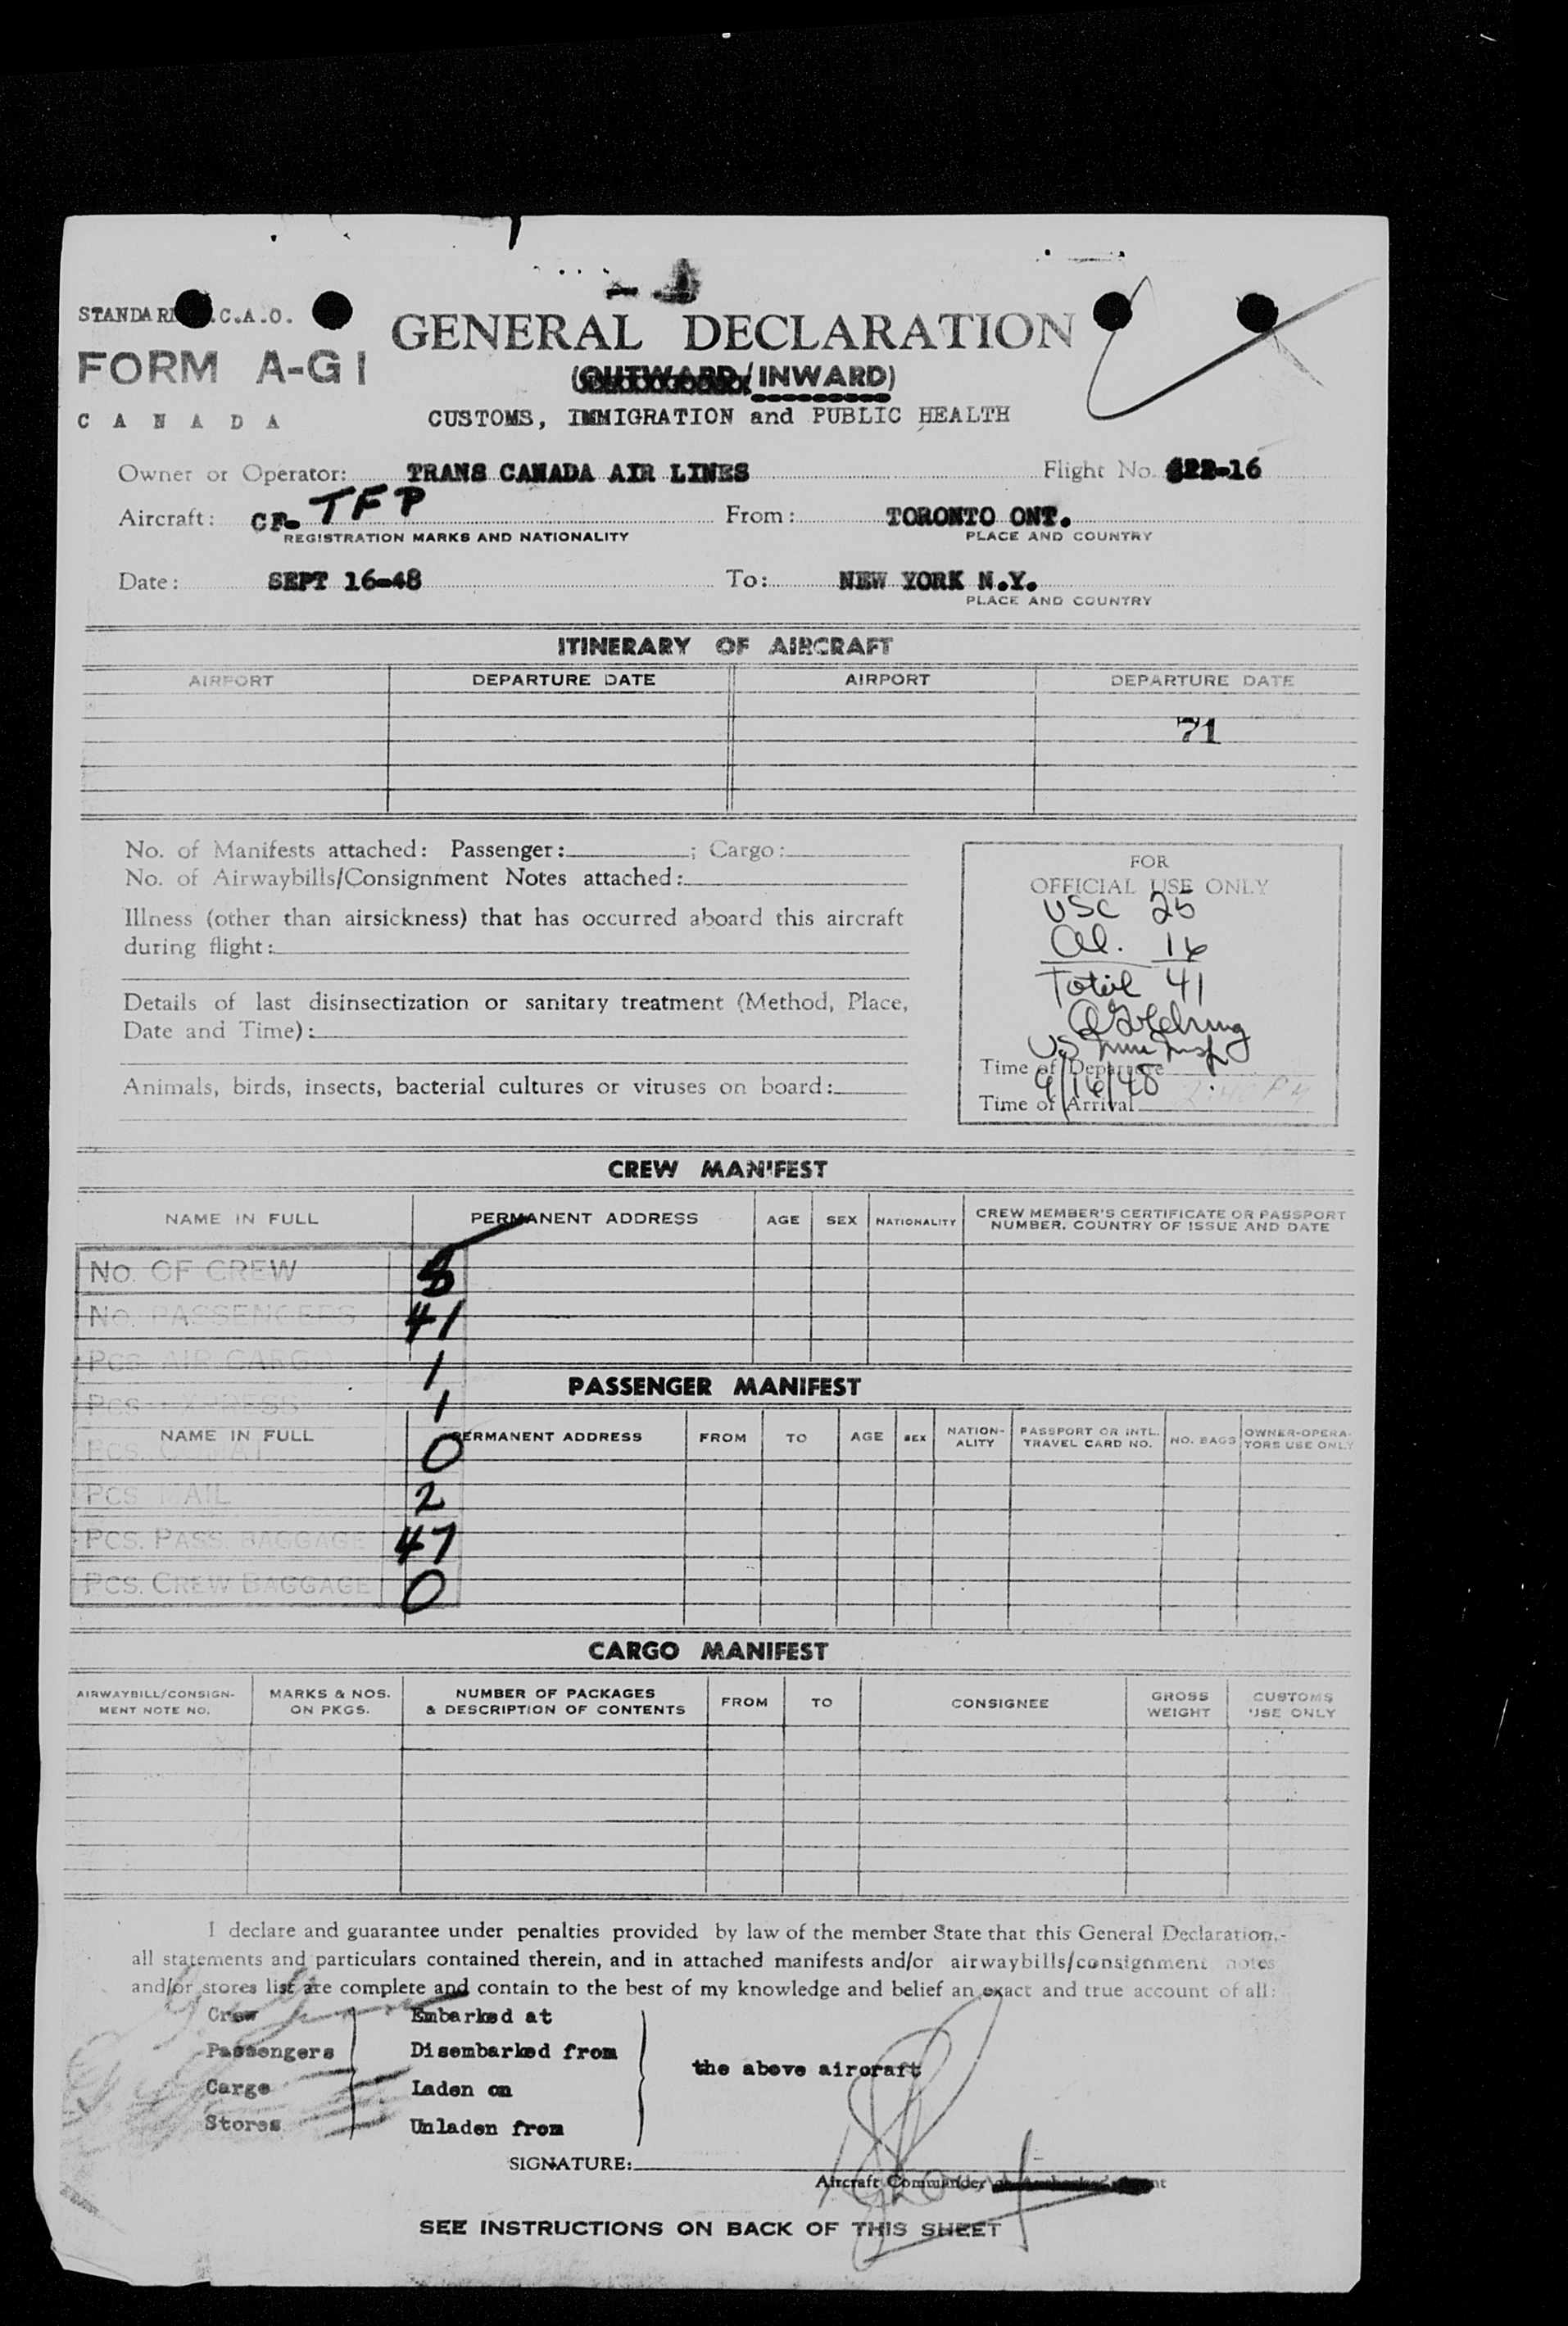 GENERAL DECLARATION
FORM A-G1
INWARD)
CANADA
CUSTOMS, IMMIGRATION and PUBLIC HEALTH
Owner or Operator: TRANS CANADA AIR LINES Flight No.
Aircraft: CF- TFP From: TORONTO ONT.
REGISTRATION MARKS AND NATIONALITY PLACE AND COUNTRY
Date: SEPT 16-48 To: NEW YORK N.Y.
PLACE AND COUNTRY
ITINERARY OF AIRCRAFT
AIRPORT DEPARTURE DATE AIRPORT DEPARTURE DATE
71
No. of Manifests attached: Passenger: ; Cargo:
No. of Airwaybills/Consignment Notes attached:
Illness (other than airsickness) that has occurred aboard this aircraft
during flight:
Details of last disinsectization or sanitary treatment (Method, Place,
Date and Time):
Animals, birds, insects, bacterial cultures or viruses on board:
FOR
OFFICIAL USE ONLY
USC 25
Al. 16
Total 41
US Imm Insp
Time of Departure
9/16/48
Time of Arrival 2:40 PM
CREW MANIFEST
NAME IN FULL PERMANENT ADDRESS AGE SEX NATIONALITY CREW MEMBER'S CERTIFICATE OR PASSPORT
NUMBER, COUNTRY OF ISSUE AND DATE
No. OF CREW
No. PASSENGERS 41
Pcs. AIR CARGO 1
Pcs. EXPRESS 1
PASSENGER MANIFEST
NAME IN FULL PERMANENT ADDRESS FROM TO AGE SEX NATION-
ALITY PASSPORT OR INTL.
TRAVEL CARD NO. NO. BAGS OWNER-OPERA-
TORS USE ONLY
0
Pcs. MAIL 2
Pcs. PASS. BAGGAGE 47
Pcs. CREW BAGGAGE 0
CARGO MANIFEST
AIRWAYBILL/CONSIGN-
MENT NOTE NO. MARKS & NOS.
ON PKGS. NUMBER OF PACKAGES
& DESCRIPTION OF CONTENTS FROM TO CONSIGNEE GROSS
WEIGHT CUSTOMS
USE ONLY
I declare and guarantee under penalties provided by law of the member State that this General Declaration,
all statements and particulars contained therein, and in attached manifests and/or airwaybills/consignment notes
and/or stores list are complete and contain to the best of my knowledge and belief an exact and true account of all:
Crew Embarked at
Passengers Disembarked from
the above aircraft
Cargo Laden on
Stores Unladen from
SIGNATURE:
Aircraft Commander
SEE INSTRUCTIONS ON BACK OF THIS SHEET